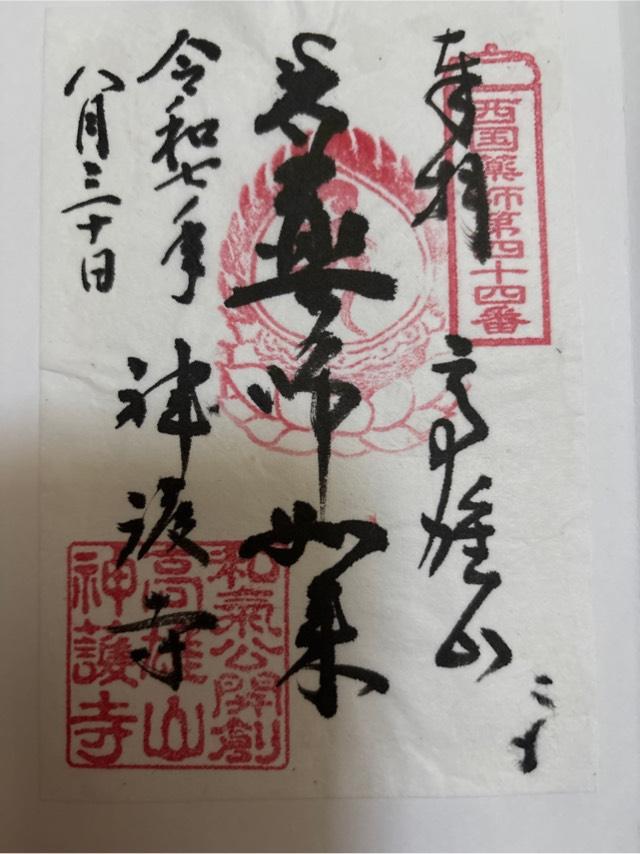 奉拝
西国薬師第四十四番
高雄山
薬師如来
令和七年
八月三十日
神護寺
和氣公開創
高雄山
神護寺